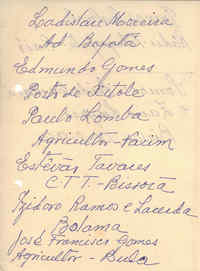 Ladislau Moreira
Ad Bafatá
Edmundo Gomes
Porto de Xitole
Paulo Lomba
Agricultor - Xaiim
Estêvão Tavares
C T T. - Bissorã
Izidoro Ramos e Lacerda
Bolama
José Francisco Gomes
Agricultor - Bula